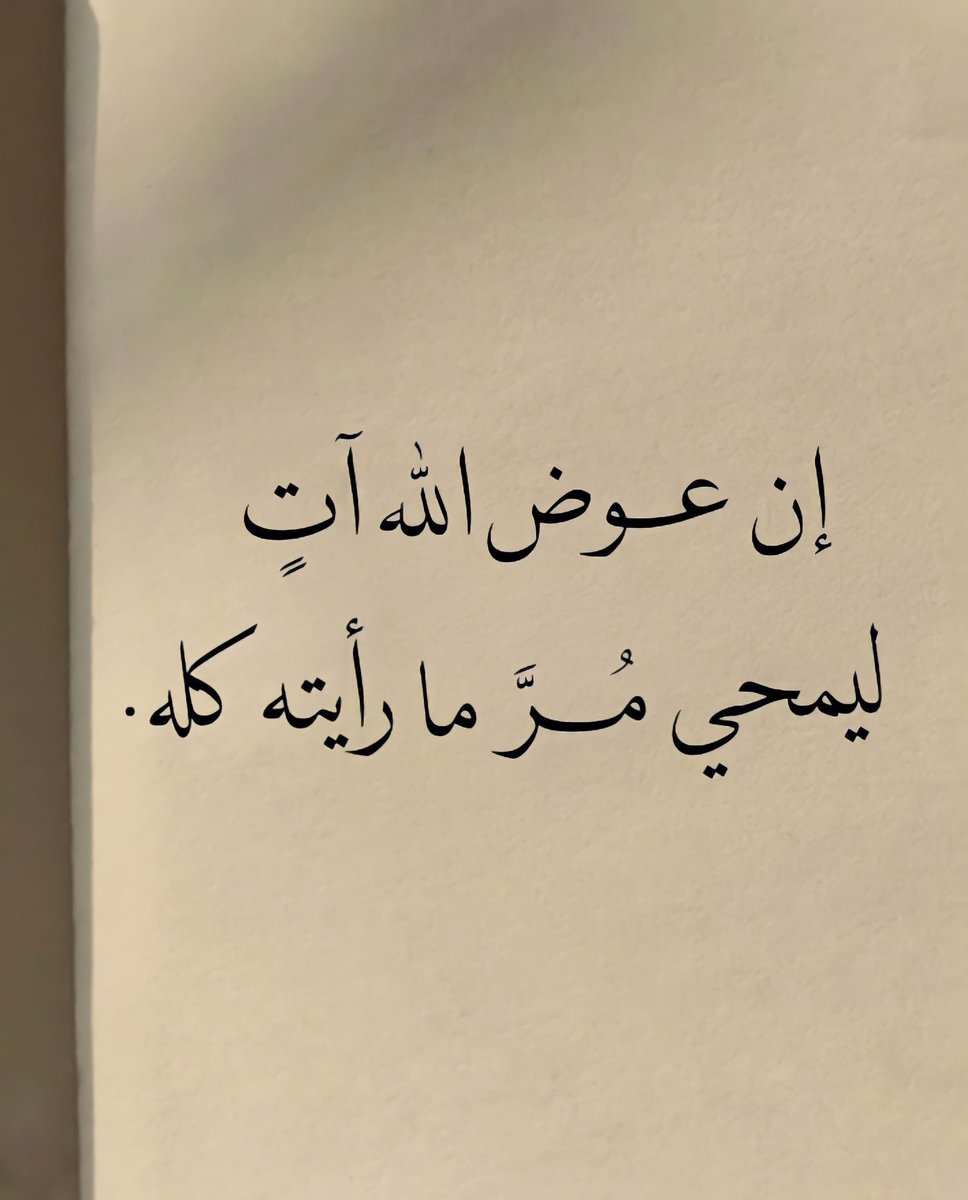 إن عوض الله آتٍ
ليمحي مُرَّ ما رأيته كله.